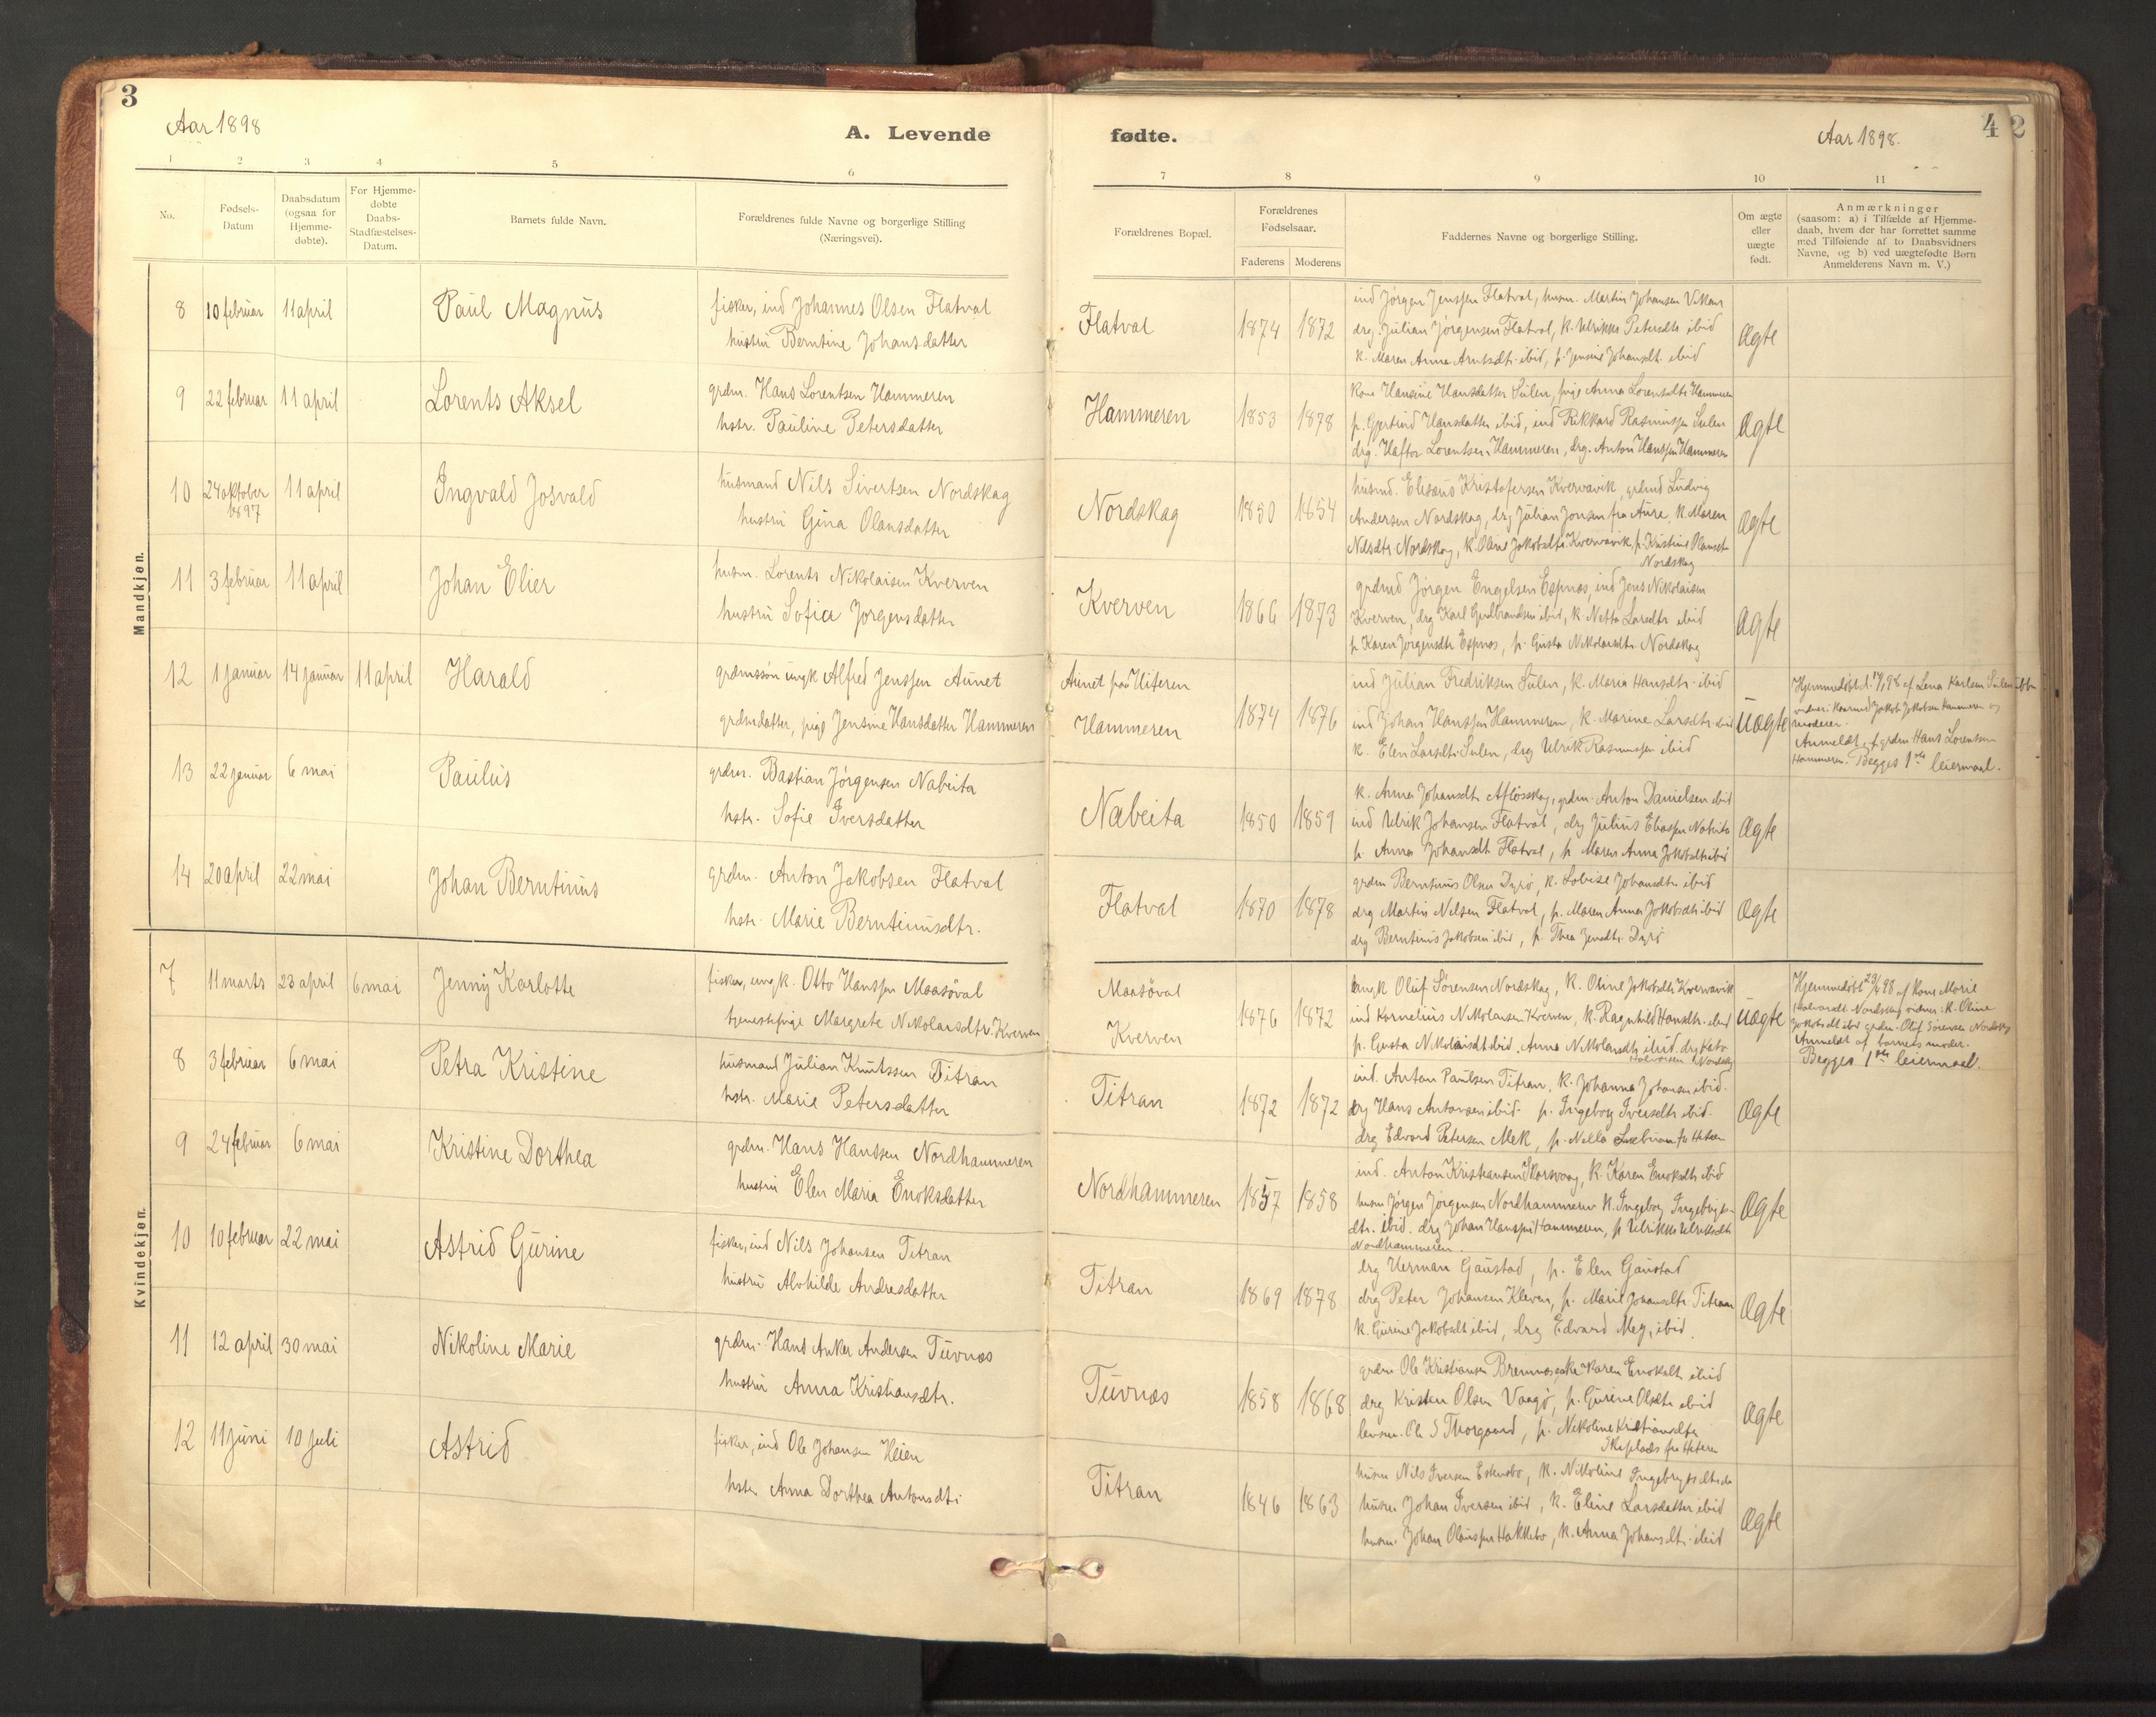 3
Aar 1898
A. Levende
1 2 3 4 5 6
No.
Fødsels-
Datum
Daabsdatum
(ogsaa for
Hjemme-
døbte).
For Hjemme-
døbte
Daabs-
Stadfæstelses-
Datum.
Barnets fulde Navn.
Forældrenes fulde Navne og borgerlige Stilling
(Næringsvei).
Mandkjøn.
8 10 februar 11 april Paul Magnus fisker, ind Johannes Olsen Flatval
hustru Berntine Johansdatter
9 22 februar 11 april Lorents Aksel grdm. Hans Lorentsen Hammeren
hstr. Pauline Petersdatter
10 24 oktober 1897 11 april Ingvald Josvald husmand Nils Sivertsen Nordskag
hustru Gina Olausdatter
11 3 februar 11 april Johan Elier husm. Lorents Nikolaisen Kverven
hustru Sofia Jørgensdatter
12 1 januar 14 januar 11 april Harald grdmssøn ungk Alfred Jenssen Aunet
grdmdatter, pige Jensine Hansdatter Hammeren
13 22 januar 6 mai Paulus grdm. Bastian Jørgensen Nabeita
hstr. Sofie Iversdatter
14 20 april 22 mai Johan Berntinus grdm. Anton Jakobsen Flatval
hstr. Marie Berntinusdtr.
Kvindekjøn.
7 11 marts 23 april 6 mai Jenny Karlotte fisker, ungk. Otto Hanssen Maasöval
tjenestepige Margrete Nikolaisdtr. Kverven
8 3 februar 6 mai Petra Kristine husmand Julian Knutssen Titran
hstr. Marie Petersdatter
9 24 februar 6 mai Kristine Dorthea grdm. Hans Hanssen Nordhammeren
hustru Elen Maria Enoksdatter
10 10 februar 22 mai Astrid Gurine fisker, ind Nils Johansen Titran
hustru Alvhilde Andreasdatter
11 12 april 30 mai Nikoline Marie grdm. Hans Anker Andersen Tuvnæs
hustru Anna Kristiansdtr.
12 11 juni 10 juli Astrid fisker, ind Ole Johansen Heien
hstr Anna Dorthea Antonsdtr
fødte.
Aar 1898.
4 2
7 8 9 10 11
Forældrenes Bopæl.
Forældrenes
Fødselsaar.
Faderens Moderens
Faddernes Navne og borgerlige Stilling.
Om ægte
eller
uægte
født.
Anmærkninger
(saasom: a) i Tilfælde af Hjemme-
daab, hvem der har forrettet samme
med Tilføiende af to Daabsvidners
Navne, og b) ved uægtefødte Børn
Anmelderens Navn m. V.)
Flatval 1874 1872 ægte
ind Jørgen Jenssen Flatval, husm. Martin Johansen
drg. Julian Jørgensen Flatval, k. Ulrikke Petersdtr ibid
k. Maren Anna Arntsdtr ibid, p. Jensine Johansdt. ibid
Hammeren 1853 1878 ægte
kone Hansine Hansdatter Sulen, pige Anna Lorentsdtr Hammeren
p. Gjertrud Hansdatter ibid, ind Rikkard Rasmussen Sulen
drg. Haftor Lorentsen Hammeren, drg. Anton Hanssen Hammeren
Nordskag 1850 1854 ægte
husmd. Elisæus Kristofersen Kvervavik, grdmd Ludvig
Andersen Nordskag, drg Julian Jonsen fra Aure, k. Maren
Nilsdtr Nordskag, k. Oline Jakobsdtr Kvervavik, p. Kristine
Nordskag
Kverven 1866 1873 ægte
grdmd Jørgen Engelsen Espnæs, ind Jens Nikolaisen
Kverven, drg Karl Gudbrandsen ibid, k. Netta Larsdtr ibid
p. Karen Jørgensdtr Espnæs, p. Gusta Nikolaisdtr Nordskag
Aunet paa Hitteren
Hammeren 1874 1876 uægte
ind Julian Fredriksen Sulen, k. Maria Hansdtr ibid
ind Johan Hanssen Hammeren, k. Marine Larsdtr ibid
k. Elen Larsdtr Sulen, drg Ulrik Rasmussen ibid
Hjemmedøbt d. 14/1 98 af Lena Karlsen Sulen
vidner: Jakob Jakobsen Hammeren og
moderen.
Anmeldt af grdm Hans Lorentsen
Hammeren. Begges 1ste leiermaal.
Nabeita 1850 1859 ægte
k. Anna Johansdtr Afløsskag, grdm. Anton Danielsen ibid
ind Ulrik Johansen Flatval, drg Julius Eliassen Nabeita
p. Anna Johansdt Flatval, p. Maren Anna Jakobsdtr ibid
Flatval 1870 1878 ægte
grdm Berntinus Olsen Dyrö, k. Lovise Johansdtr ibid
drg Martin Nilsen Flatval, p. Maren Anna Jakobsdtr ibid
drg Berntinus Jakobsen ibid, p. Thea Jensdtr. Dyrö
Maasöval
Kverven 1876 1872 uægte
ungk Oluf Sörensen Nordskag, k. Oline Jakobsdtr Kvervavik
ind Kornelius Nikolaisen Kverven, k. Ragnhild Hansdtr ibid
p. Gusta Nikolaisdt ibid, Anna Nikolaisdtr ibid, drg
Nordskag
Hjemmedøbt 23/4 98 af kone Marie
Nordskag vidner: k. Oline
Jakobsdt ibid grdm. Oluf Sörensen Nordskag
Anmeldt af barnets moder.
Begges 1ste leiermaal.
Titran 1872 1872 ægte
ind. Anton Paulsen Titran, k. Johanna Johansen ibid.
drg Hans Antonsen ibid. p. Ingeborg Iversdtr ibid.
drg Edvard Petersen Mek, p. Nella fra Hitteren
Nordhammeren 1857 1858 ægte
ind. Anton Kristiansen Skarsvaag, k. Karen Enoksdtr ibid
husm Jørgen Jørgensen Nordhammeren k. Ingeborg Ingebrigts-
dtr. ibid. drg Johan Hanssen Hammeren, p Ulrikke Ulriksdtr
Nordhammeren.
Titran 1869 1878 ægte
drg Herman Gaustad, p. Elen Gaustad
drg Peter Johansen Kleven, p. Marie Johansdtr Titran
k. Gurine Jakobsdt ibid, drg Edvard Meg, ibid.
Tuvnæs 1858 1868 ægte
grdm Ole Kristiansen Bremnes, Karen Enoksdtr ibid
drg Kristen Olsen Vaagö, p. Gurine Olsdtr ibid
lensm. Ole S Thorgaard, p. Nikoline Kristiansdtr
fra Hitteren
Titran 1846 1863 ægte
husm Nils Iversen, k. Nikoline Ingebrigtsdtr
husm Johan Iversen ibid, k. Eline Larsdatter ibid
husm. Johan Olaussen Hakkebo, k. Anna Johansdtr ibid